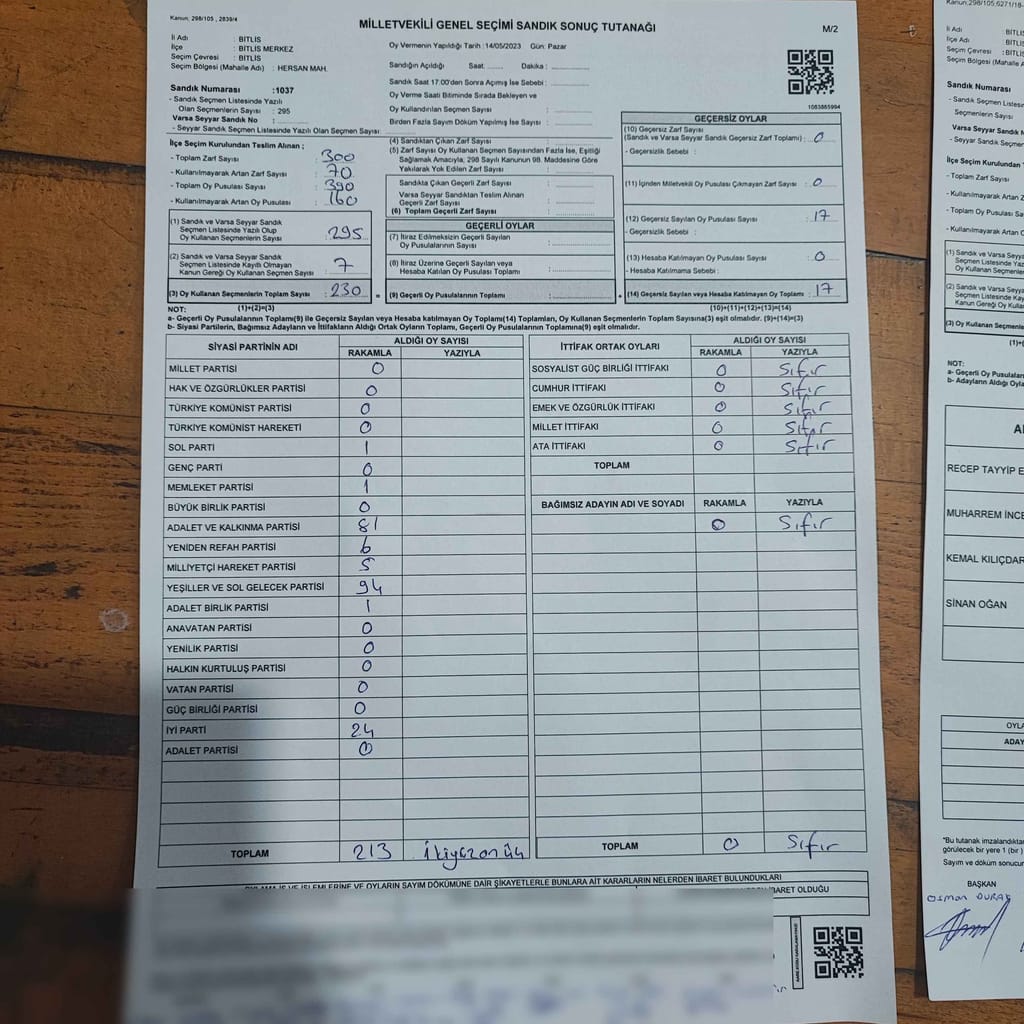 Kanun, 298/105 , 2839/4
MİLLETVEKİLİ GENEL SEÇİMİ SANDIK SONUÇ TUTANAĞI
M/2
İli Adı : BİTLİS
İlçe : BİTLİS MERKEZ
Seçim Çevresi : BİTLİS
Seçim Bölgesi (Mahalle Adı) : HERSAN MAH.
Oy Vermenin Yapıldığı Tarih :14/05/2023 Gün: Pazar
Sandığın Açıldığı Saat....... Dakika :
Sandık Saat 17.00'den Sonra Açılmış İse Sebebi :
Oy Verme Saati Bitiminde Sırada Bekleyen ve
Oy Kullandırılan Seçmen Sayısı :
Birden Fazla Sayım Döküm Yapılmış İse Sayısı :
1083865994
Sandık Numarası :1037
- Sandık Seçmen Listesinde Yazılı
Olan Seçmenlerin Sayısı : 295
Varsa Seyyar Sandık No :
- Seyyar Sandık Seçmen Listesinde Yazılı Olan Seçmen Sayısı:
İlçe Seçim Kurulundan Teslim Alınan ;
- Toplam Zarf Sayısı : 300
- Kullanılmayarak Artan Zarf Sayısı : 70
- Toplam Oy Pusulası Sayısı : 390
- Kullanılmayarak Artan Oy Pusulası : 160
(1) Sandık ve Varsa Seyyar Sandık
Seçmen Listesinde Yazılı Olup
Oy Kullanan Seçmenlerin Sayısı : 295
(2) Sandık ve Varsa Seyyar Sandık
Seçmen Listesinde Kayıtlı Olmayan
Kanun Gereği Oy Kullanan Seçmen Sayısı : 7
(3) Oy Kullanan Seçmenlerin Toplam Sayısı : 230
(4) Sandıktan Çıkan Zarf Sayısı :
(5) Zarf Sayısı Oy Kullanan Seçmen Sayısından Fazla İse, Eşitliği
Sağlamak Amacıyla, 298 Sayılı Kanunun 98. Maddesine Göre
Yakılarak Yok Edilen Zarf Sayısı :
Sandıkta Çıkan Geçerli Zarf Sayısı :
Varsa Seyyar Sandıktan Teslim Alınan
Geçerli Zarf Sayısı :
(6) Toplam Geçerli Zarf Sayısı :
GEÇERLİ OYLAR
(7) İtiraz Edilmeksizin Geçerli Sayılan
Oy Pusulalarının Sayısı :
(8) İtiraz Üzerine Geçerli Sayılan veya
Hesaba Katılan Oy Pusulası Toplamı :
= (9) Geçerli Oy Pusulalarının Toplamı :
GEÇERSİZ OYLAR
(10) Geçersiz Zarf Sayısı
(Sandık ve Varsa Seyyar Sandık Geçersiz Zarf Toplamı) : 0
- Geçersizlik Sebebi :
(11) İçinden Milletvekili Oy Pusulası Çıkmayan Zarf Sayısı : 0
(12) Geçersiz Sayılan Oy Pusulası Sayısı : 17
- Geçersizlik Sebebi :
(13) Hesaba Katılmayan Oy Pusulası Sayısı : 0
- Hesaba Katılmama Sebebi :
+ (14) Geçersiz Sayılan veya Hesaba Katılmayan Oy Toplamı : 17
NOT: (1)+(2)=(3) (10)+(11)+(12)+(13)=(14)
a- Geçerli Oy Pusulalarının Toplamı(9) ile Geçersiz Sayılan veya Hesaba Katılmayan Oy Toplamı(14) Toplamları, Oy Kullanan Seçmenlerin Toplam Sayısına(3) eşit olmalıdır. (9)+(14)=(3)
b- Siyasi Partilerin, Bağımsız Adayların ve İttifakların Aldığı Ortak Oyların Toplamı, Geçerli Oy Pusulalarının Toplamına(9) eşit olmalıdır.
SİYASİ PARTİNİN ADI ALDIĞI OY SAYISI
RAKAMLA YAZIYLA
MİLLET PARTİSİ 0
HAK VE ÖZGÜRLÜKLER PARTİSİ 0
TÜRKİYE KOMÜNİST PARTİSİ 0
TÜRKİYE KOMÜNİST HAREKETİ 0
SOL PARTİ 1
GENÇ PARTİ 0
MEMLEKET PARTİSİ 1
BÜYÜK BİRLİK PARTİSİ 0
ADALET VE KALKINMA PARTİSİ 81
YENİDEN REFAH PARTİSİ 6
MİLLİYETÇİ HAREKET PARTİSİ 5
YEŞİLLER VE SOL GELECEK PARTİSİ 94
ADALET BİRLİK PARTİSİ 1
ANAVATAN PARTİSİ 0
YENİLİK PARTİSİ 0
HALKIN KURTULUŞ PARTİSİ 0
VATAN PARTİSİ 0
GÜÇ BİRLİĞİ PARTİSİ 0
İYİ PARTİ 24
ADALET PARTİSİ 0
TOPLAM 213 ikiyüzonüç
İTTİFAK ORTAK OYLARI ALDIĞI OY SAYISI
RAKAMLA YAZIYLA
SOSYALİST GÜÇ BİRLİĞİ İTTİFAKI 0 Sıfır
CUMHUR İTTİFAKI 0 Sıfır
EMEK VE ÖZGÜRLÜK İTTİFAKI 0 Sıfır
MİLLET İTTİFAKI 0 Sıfır
ATA İTTİFAKI 0 Sıfır
TOPLAM
BAĞIMSIZ ADAYIN ADI VE SOYADI RAKAMLA YAZIYLA
0 Sıfır
TOPLAM 0 Sıfır
OYLAMA İŞ VE İŞLEMLERİNE VE OYLARIN SAYIM DÖKÜMÜNE DAİR ŞİKAYETLERLE BUNLARA AİT KARARLARIN NELERDEN İBARET BULUNDUKLARI
İBARET OLDUĞU
Kanun;298/105;6271/18-
İli Adı : BİTLİS
İlçe Adı : BİTLİ
Seçim Çevresi : BİTLİ
Sandık Numarası
- Sandık Seçmen Listesi
Seçmenlerin Sayısı
Varsa Seyyar Sandık
- Seyyar Sandık Seçmen
İlçe Seçim Kurulundan
- Toplam Zarf Sayısı
- Kullanılmayarak Artan
- Toplam Oy Pusulası Sa
- Kullanılmayarak Artan O
(1) Sandık ve Varsa Seyyar
Seçmen Listesinde Yazı
Oy Kullanan Seçmenleri
(2) Sandık ve Varsa Seyyar
Seçmen Listesinde Kayı
Kanun Gereği Oy Kullan
(3) Oy Kullanan Seçmenle
(1)+
NOT:
a- Geçerli Oy Pusulaları
b- Adayların Aldığı Oyla
RECEP TAYYİP E
MUHARREM İNCE
KEMAL KILIÇDAR
SİNAN OĞAN
OYLA
ADAY
*Bu tutanak imzalandıkta
görülecek bir yere 1 (bir )
Sayım ve döküm sonucun
BAŞKAN
Osman DURAK